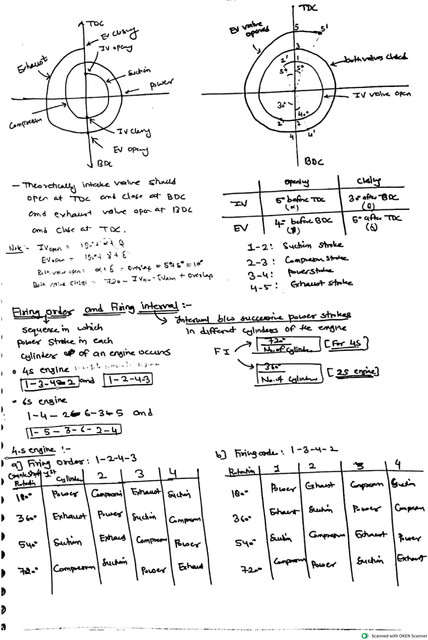 TDC
EV closing
IV opening
Exhaust
Suction
Power
Compression
IV closing
EV opening
BDC
TDC
EV valve opened
5 5'
3
2' 1
5° 5°
both valves closed
IV valve open
30°
40°
2' 2
4 4'
BDC
- Theoretically intake valve should
open at TDC and close at BDC
and exhaust valve open at BDC
and close at TDC.
Note:-
opening closing
IV 5° before TDC (α) 30° after BDC
EV 40° before BDC 5° after TDC
1-2: Suction stroke
2-3: Compression stroke
3-4: power stroke
4-5: Exhaust stroke
Firing order and Firing interval:-
sequence in which
power stroke in each
cylinder of an engine occurs
Interval b/w successive power strokes
in different cylinders of the engine
FI 720° / No. of cylinder [For 4S]
360° / No. of cylinder [2S engine]
4S engine
1-3-4-2 and 1-2-4-3
6S engine
1-4-2-6-3-5 and
1-5-3-6-2-4
4-S engine:-
a) Firing order: 1-2-4-3
Crank Shaft Rotation 1st Cylinder 2 3 4
180° Power Compression Exhaust Suction
360° Exhaust Power Suction Compression
540° Suction Exhaust Compression Power
720° Compression Suction Power Exhaust
b) Firing order: 1-3-4-2
Rotation 1 2 3 4
180° Power Exhaust Compression Suction
360° Exhaust Suction Power Compression
540° Suction Compression Exhaust Power
720° Compression Power Suction Exhaust
Scanned with OKEN Scanner